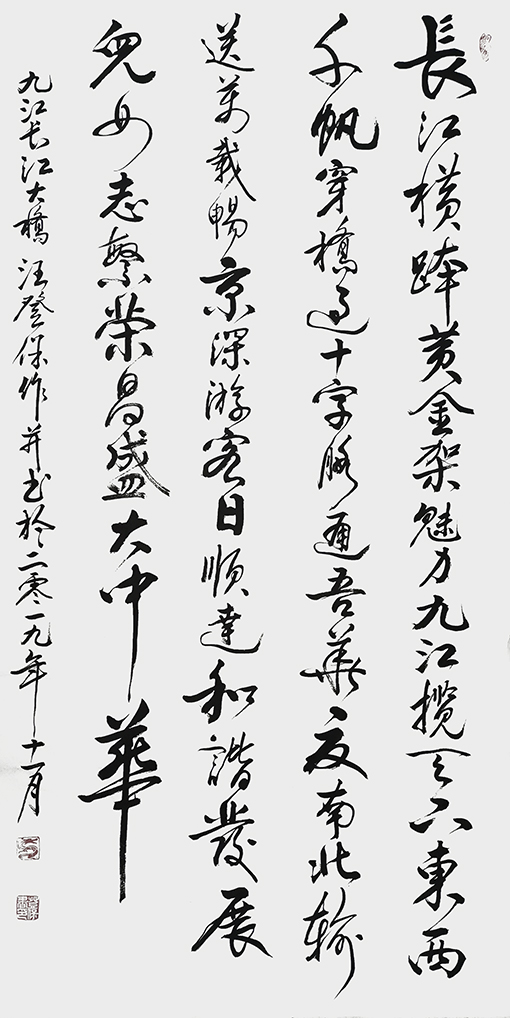 長江横跨黄金架魅力九江揽天下東西
千帆穿橋过十字脉通吾華南北輸
送萬載暢京深游客日順達和諧發展
兒女志繁荣昌盛大中華
九江长江大橋 汪登保作并书於二零一九年十一月